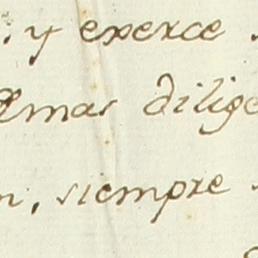 y exerce
mas dilige
n, siempre